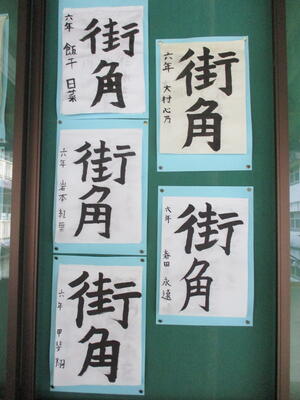 街角
六年 飯干 日菜
街角
六年 大村心乃
街角
六年 岩本 紅葉
街角
六年 春田 永遠
街角
六年 甲斐 翔